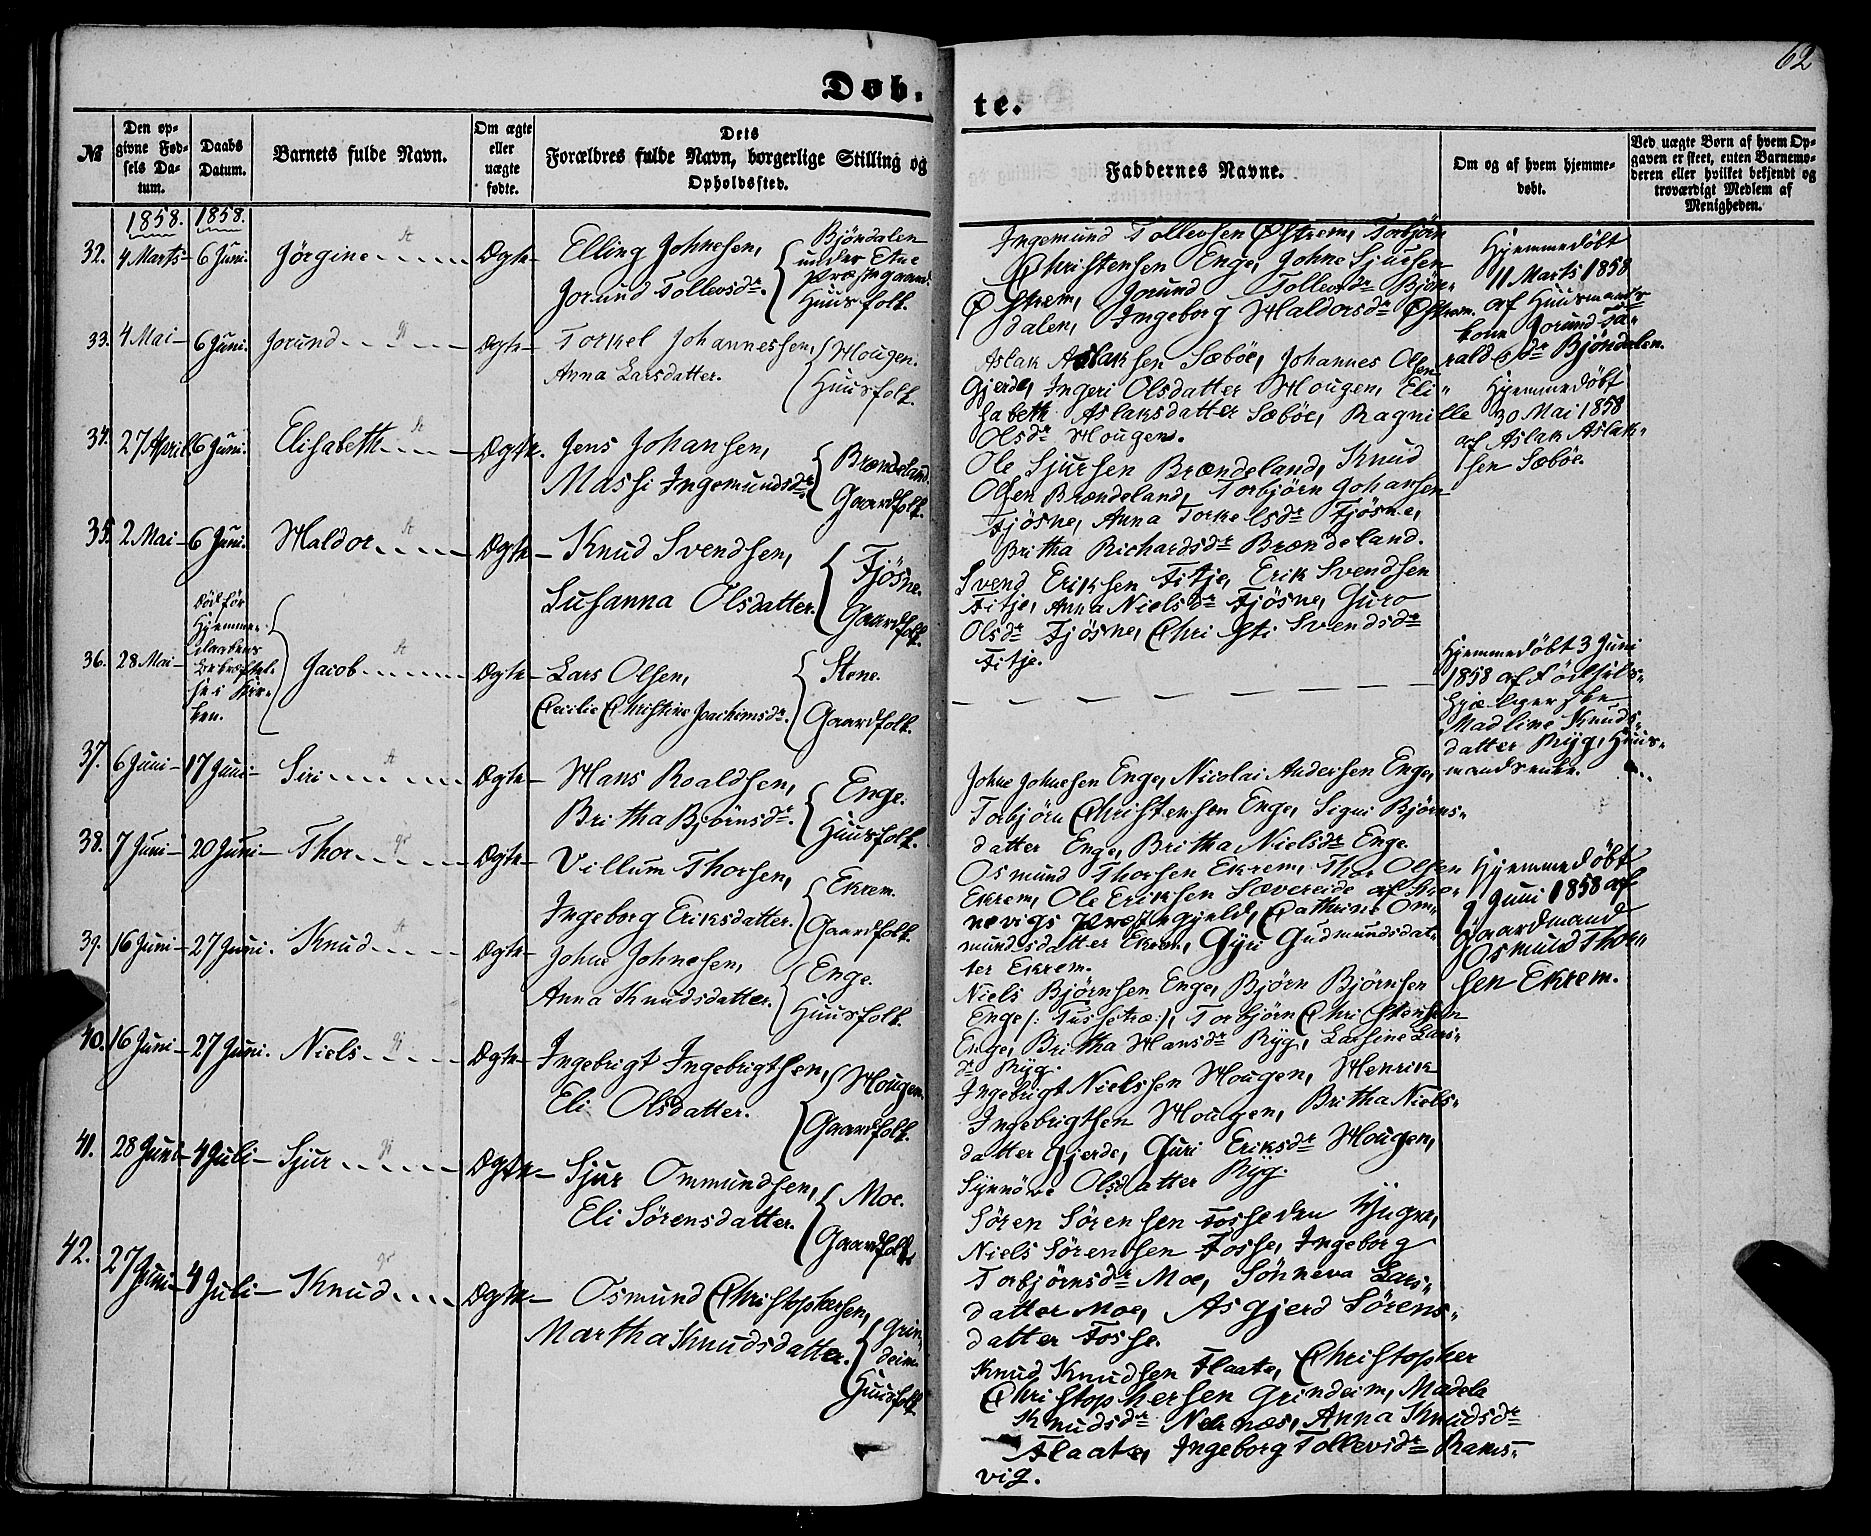 62
Døb-
te.
№
Den op-
givne Fød-
sels Da-
tum.
Daabs
Datum.
Barnets fulde Navn.
Om ægte
eller
uægte
fødte.
Dets
Forældres fulde Navn, borgerlige Stilling og
Opholdssted.
Faddernes Navne.
Om og af hvem hjemme-
døbt.
Ved uægte Børn af hvem Op-
gaven er skeet, enten Barnemo-
deren eller hvilket bekjendt og
troværdigt Medlem af
Menigheden.
1858. 1858.
32. 4 Marts 6 Juni. Jørgine Ægte
Elling Johnesen,
Jorund Tollevsdr.
Bjöndalen
under Etne
Præstegaard.
Huusfolk.
Ingemund Tollevsen Østrem, Torbjörn
Christensen Enge, Johne Sjursen
Østrem, Jorund Tollevsdr Bjön-
dalen, Ingeborg Haldorsdr Østrem.
Hjemmedöbt
11 Marts 1858
af Huusmands
kone Jorund Ta-
raldsdr Bjöndalen.
33. 4 Mai 6 Juni. Jorund Ægte
Torkel Johannessen,
Anna Larsdatter.
Hougen.
Huusfolk.
Aslak Aslaksen Sæböe, Johannes Olsen
Gjerde, Ingeri Olsdatter Hougen, Eli-
sabeth Aslaksdatter Sæböe, Ragnille
Olsdr Hougen.
Hjemmedöbt
30 Mai 1858
af Aslak Aslak-
sen Sæböe.
34. 27 April 6 Juni. Elisabeth Ægte.
Jens Johansen,
Massi Ingemundsdr.
Brændeland.
Gaardfolk.
Ole Sjursen Brændeland, Knud
Olsen Brændeland, Torbjörn Johansen
Fjösne, Anna Torkelsdr Fjösne,
Britha Richardsdr Brændeland.
35. 2 Mai 6 Juni. Haldor Ægte
Knud Svendsen,
Susanna Olsdatter.
Fjösne.
Gaardfolk.
Svend Eriksen Fitje, Erik Svendsen
Fitje, Anna Nielsdr Fjösne, Guro
Olsdr Fjösne, Christi Svendsdr
Fitje.
36. 28 Mai
Död för
Hjemme-
daabens
Bekræftel-
se i Kir-
ken.
Jacob Ægte
Lars Olsen,
Cecilie Christine Joachimsdr.
Stene.
Gaardfolk.
Hjemmedöbt 3 Juni
1858 af Födsels-
hjælpersken
Madline Knuds-
datter Ryg, Huus-
mandsenke.
37. 6 Juni 17 Juni Siri Ægte
Hans Roaldsen,
Britha Bjørnsdr.
Enge.
Huusfolk.
Johne Johnesen Enge, Nicolai Andersen Enge,
Torbjörn Christensen Enge, Signi Bjørns-
datter Enge, Britha Nielsdr Enge.
38. 7 Juni 20 Juni Thor Ægte
Villum Thorsen,
Ingeborg Eriksdatter.
Ekrem.
Gaardfolk.
Osmund Thorsen Ekrem, Thor Olsen
Ekrem, Ole Eriksen Sævereide af Sko-
nevigs Præstegjeld, Cathrine Om-
mundsdatter Ekrem, Gyri Gudmundsdat-
ter Ekrem.
Hjemmedöbt
9 Juni 1858 af
Gaardmand
Osmund Thor-
sen Ekrem.
39. 16 Juni 27 Juni. Knud Ægte
Johne Johnesen,
Anna Knudsdatter.
Enge.
Huusfolk.
Niels Bjørnsen Enge, Bjørn Bjørnsen
Enge /: Tussetræ:/, Torbjörn Christensen
Enge, Britha Hansdr Ryg, Larsine Lars-
dr Ryg.
40. 16 Juni 27 Juni. Niels Ægte
Ingebrigt Ingebrigtsen,
Eli Olsdatter.
Hougen.
Gaardfolk.
Ingebrigt Nielssen Hougen, Henrik
Ingebrigtsen Hougen, Britha Niels-
datter Gjerde, Guri Eriksdr Hougen,
Synnöve Olsdatter Ryg.
41. 28 Juni 4 Juli Sjur Ægte
Sjur Ommundsen,
Eli Sörensdatter.
Moe.
Gaardfolk.
Sören Sörensen Fosse den Yngre,
Niels Sörensen Fosse, Ingeborg
Torbjørnsdr Moe, Sönneva Lars-
datter Moe, Asgjerd Sörens-
datter Fosse.
42. 27 Juni 4 Juli Knud Ægte
Osmund Christophersen,
Martha Knudsdatter.
Grin-
deim.
Huusfolk
Knud Knudsen Flaate, Christopher
Christophersen Grindeim, Madela
Knudsdr Nernæs, Anna Knudsdr
Flaate, Ingeborg Tollevsdr Rams-
vig.